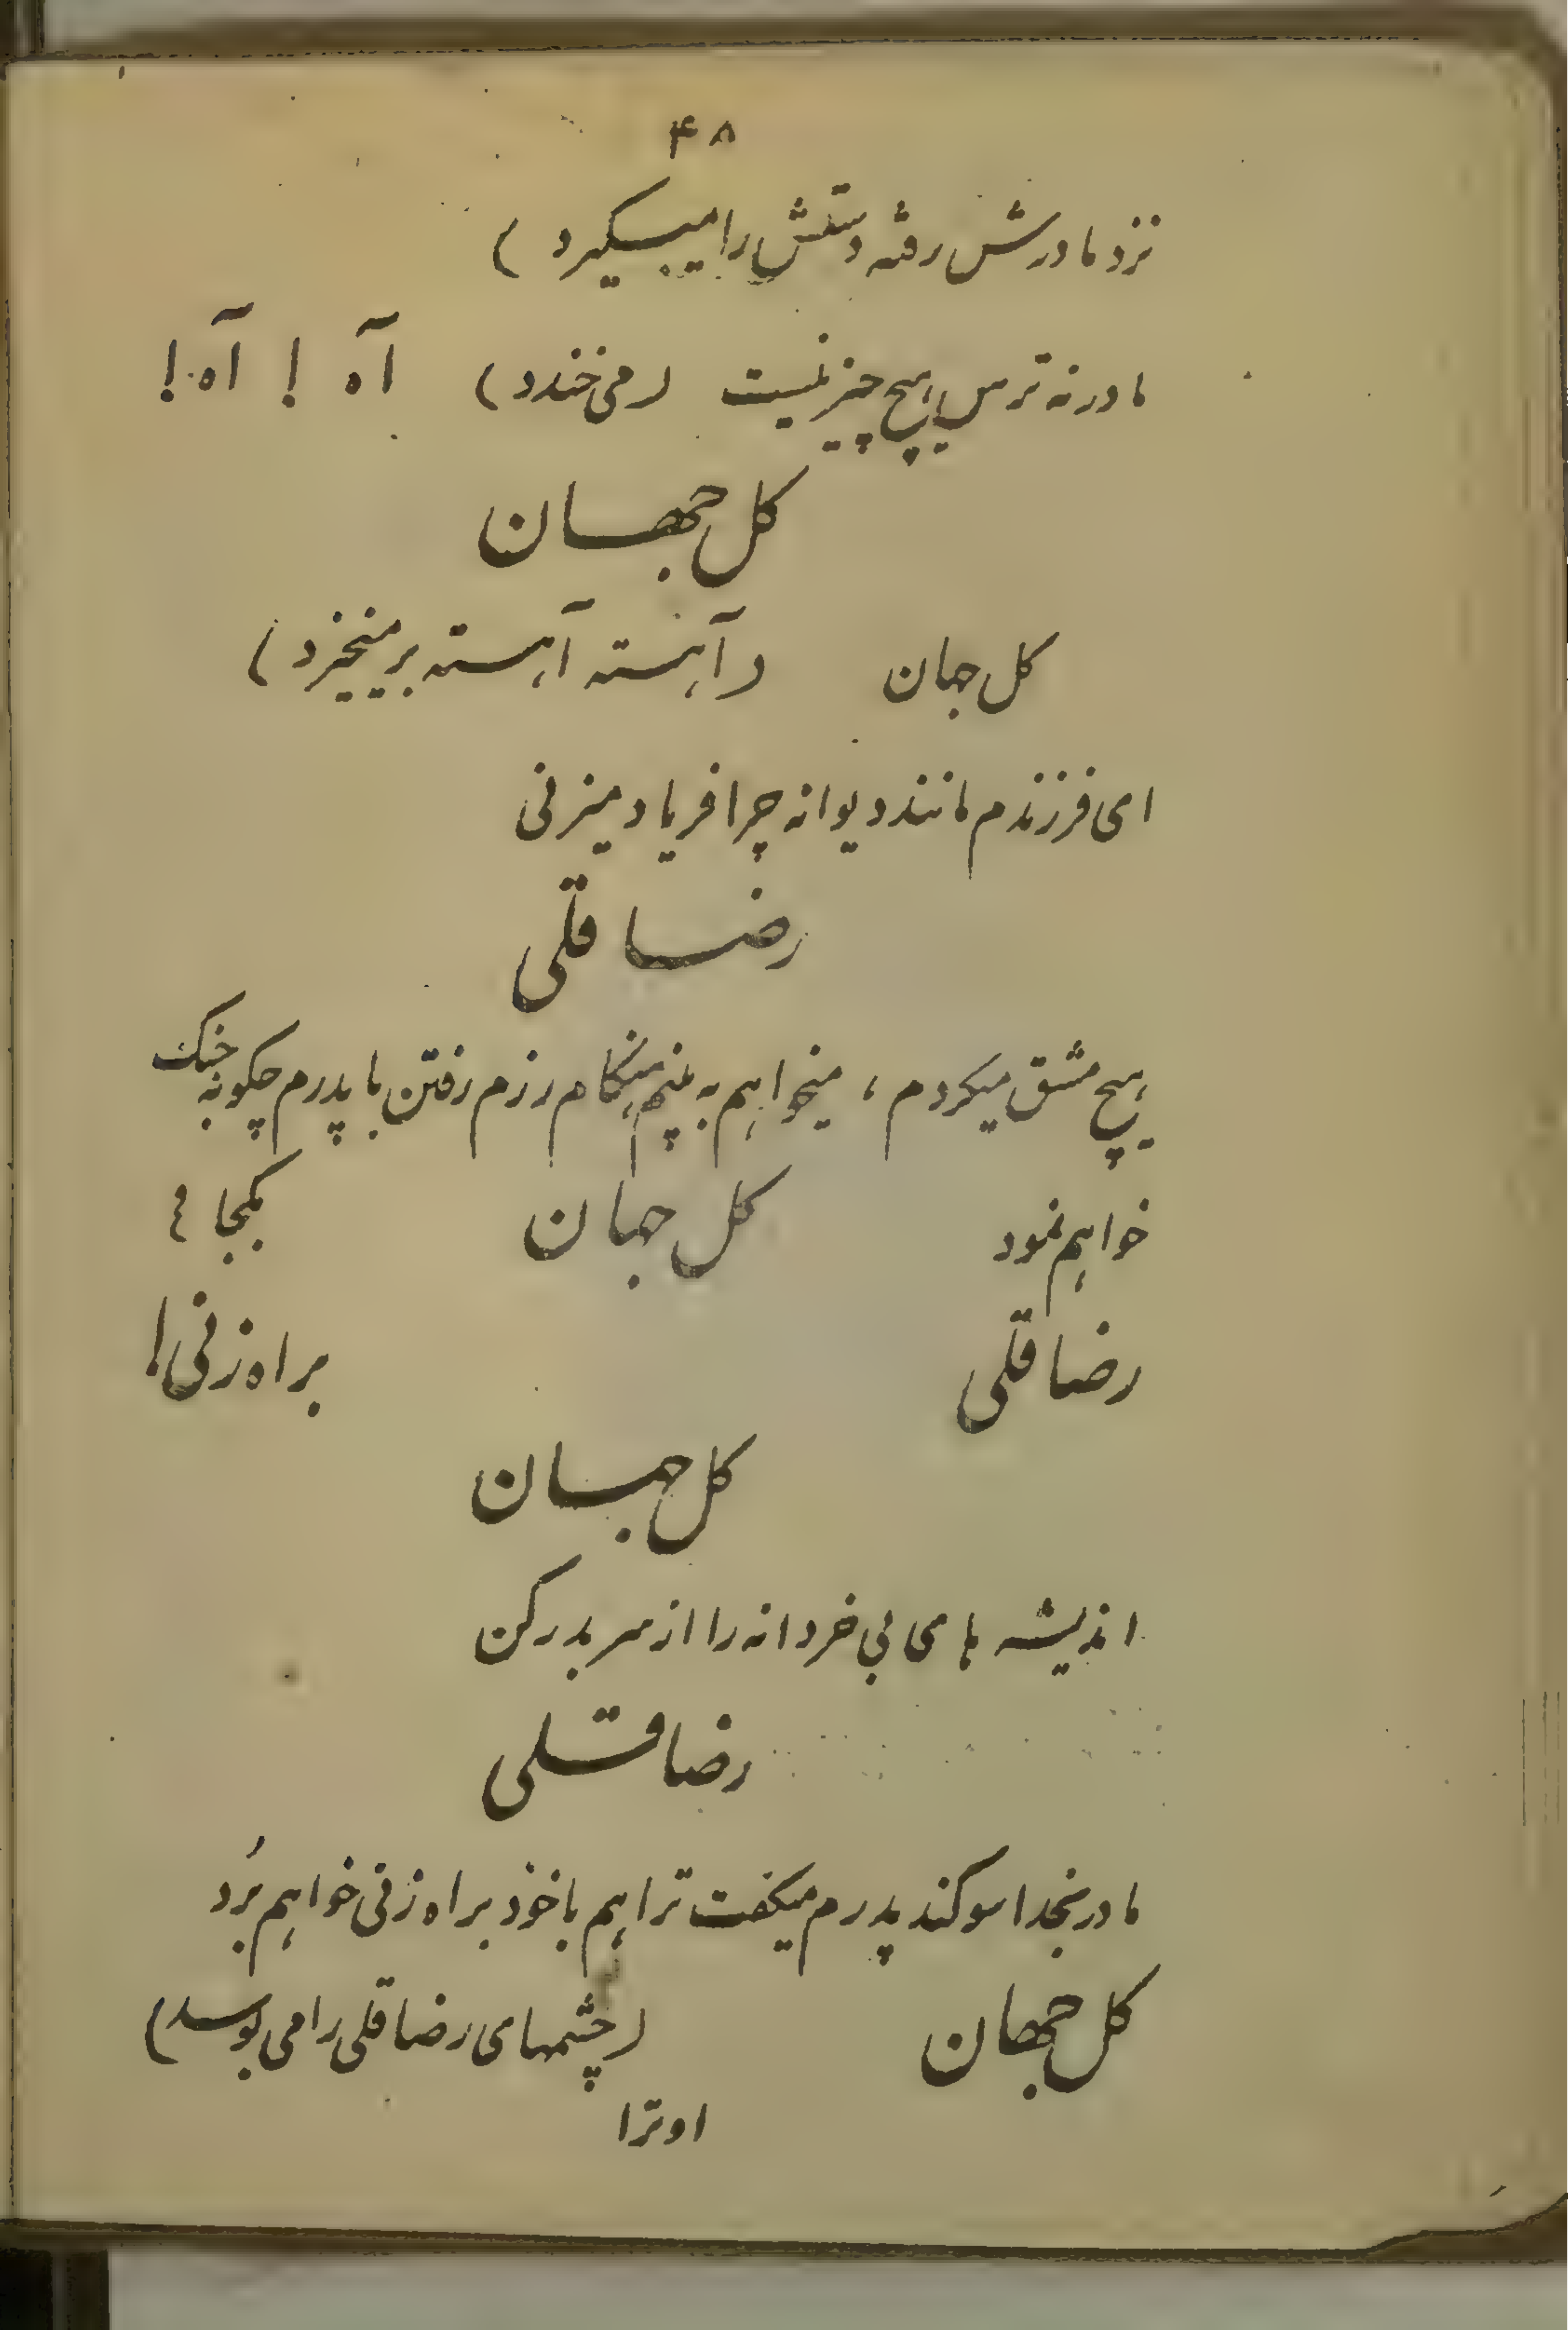 ۴۸
نزد مادرش رفته دستش را میگیرد )
مادر نه ترس هیچ چیز نیست (می خندد) آه ! آه !
کل جهان
کل جهان (آهسته آهسته برمیخیزد )
ای فرزندم مانند دیوانه چرا فریاد میزنی
رضا قلی
هیچ مشق میکردم ، میخواهم به بینم هنگام رزم رفتن با پدرم چکونه جنک
خواهم نمود کل جهان بکجا ؟
رضا قلی براه زنی !
کل جهان
اندیشه های بی خردانه را از سر بدر کن
رضا قلی
مادر بخدا سوکند پدرم میکفت ترا هم با خود براه زنی خواهم بُرد
کل جهان (چشمهای رضا قلی را می بوسد)
او ترا